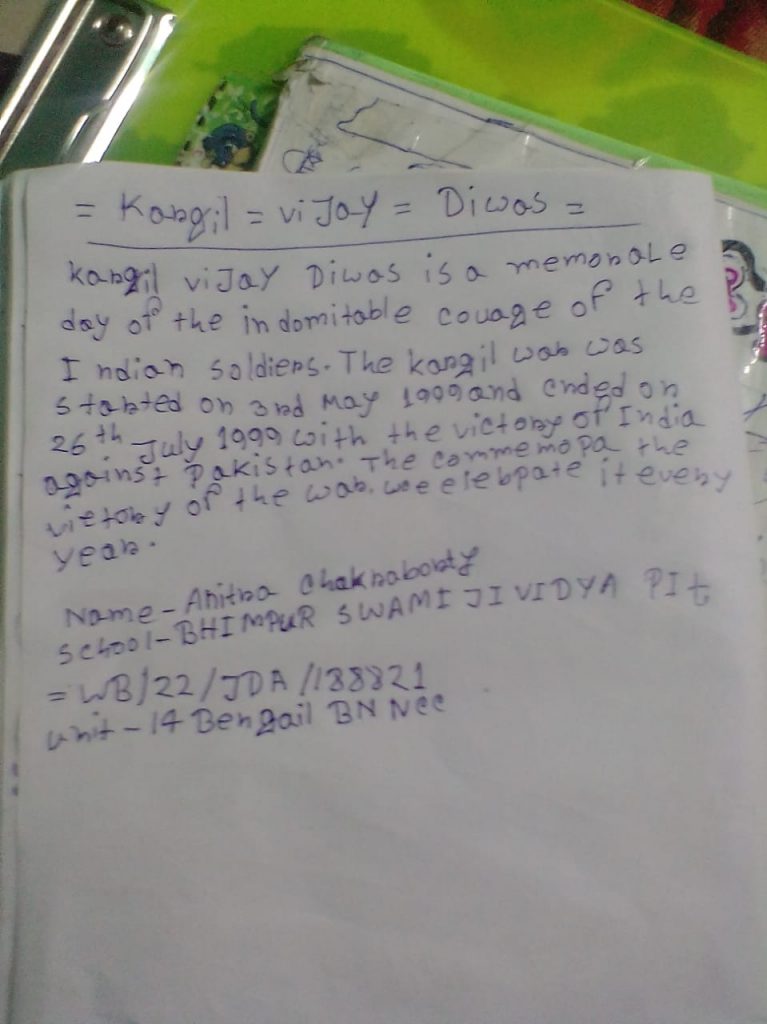 = Kargil = viJay = Diwas =
kargil viJAY Diwas is a memorale
day of the indomitable couage of the
Indian soldiers. The kargil war was
started on 3rd May 1999 and ended on
26th July 1999 with the victory of India
against Pakistan. The commemora the
victory of the war. we elebrate it every
year.
Name - Anitra Chakraborty
School - BHIMPUR SWAMIJI VIDYA PIt
= WB/22/JDA/138821
Unit - 14 Bengail BN Ncc